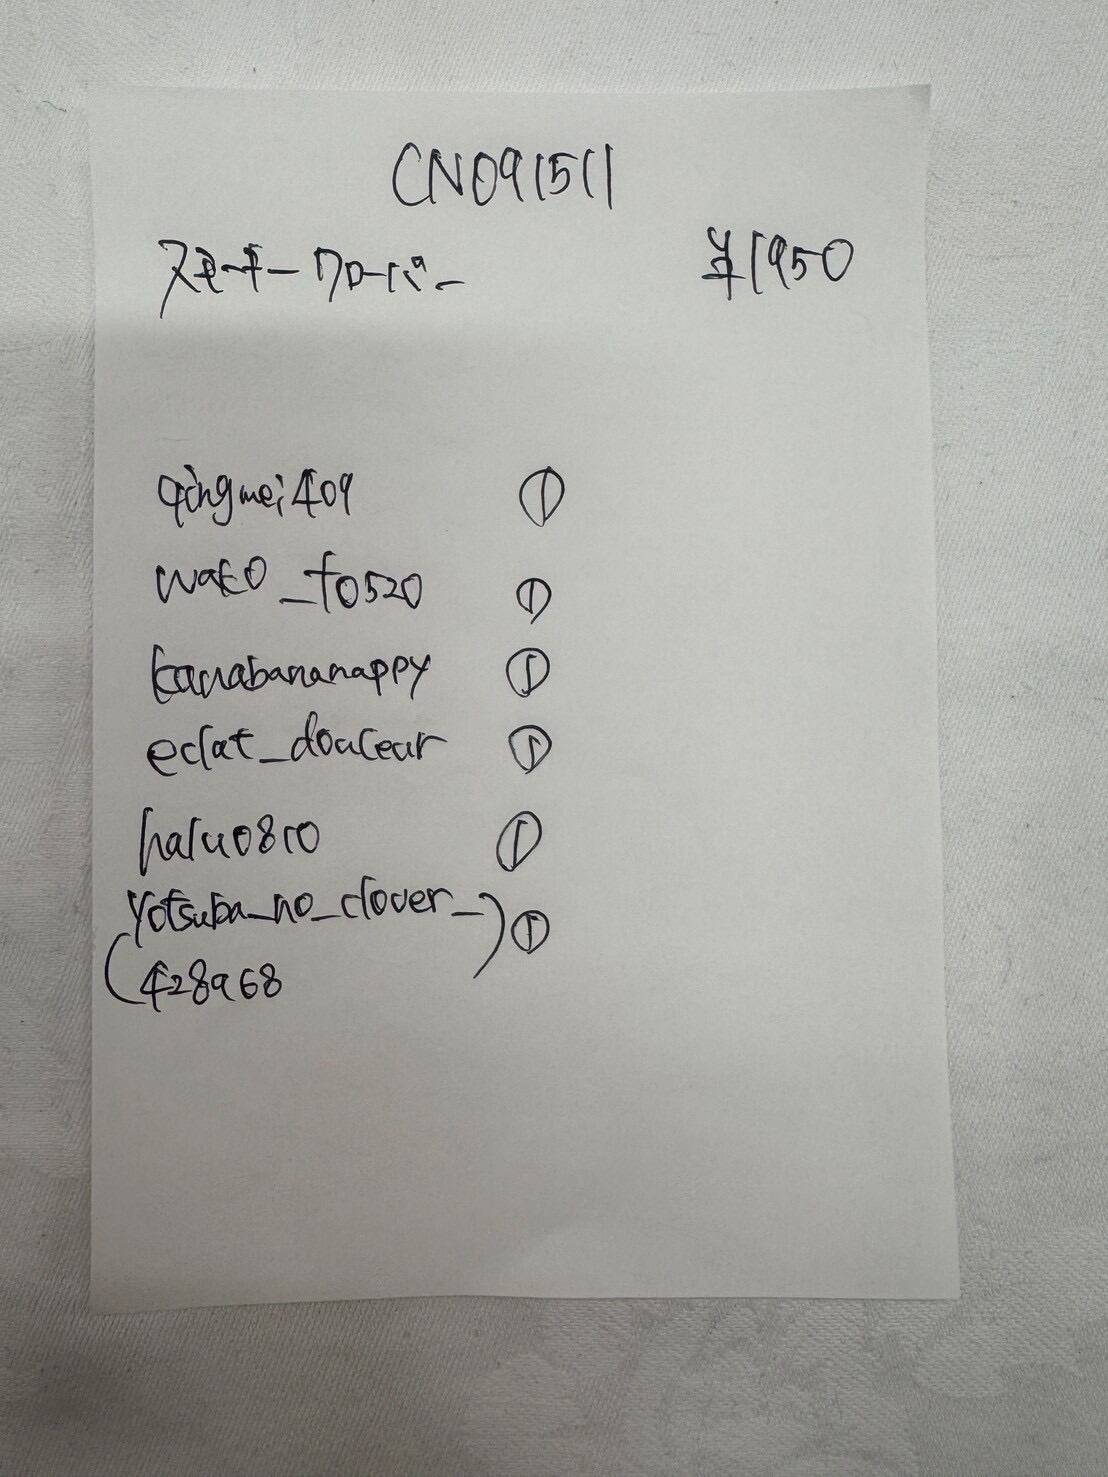 CN091511
スモーキークローバー ¥1950
qingmei409 ①
wako_t0520 ①
kanabananappy ①
eclat_douceur ①
halu0810 ①
(yotsuba_no_clover_) ①
428968